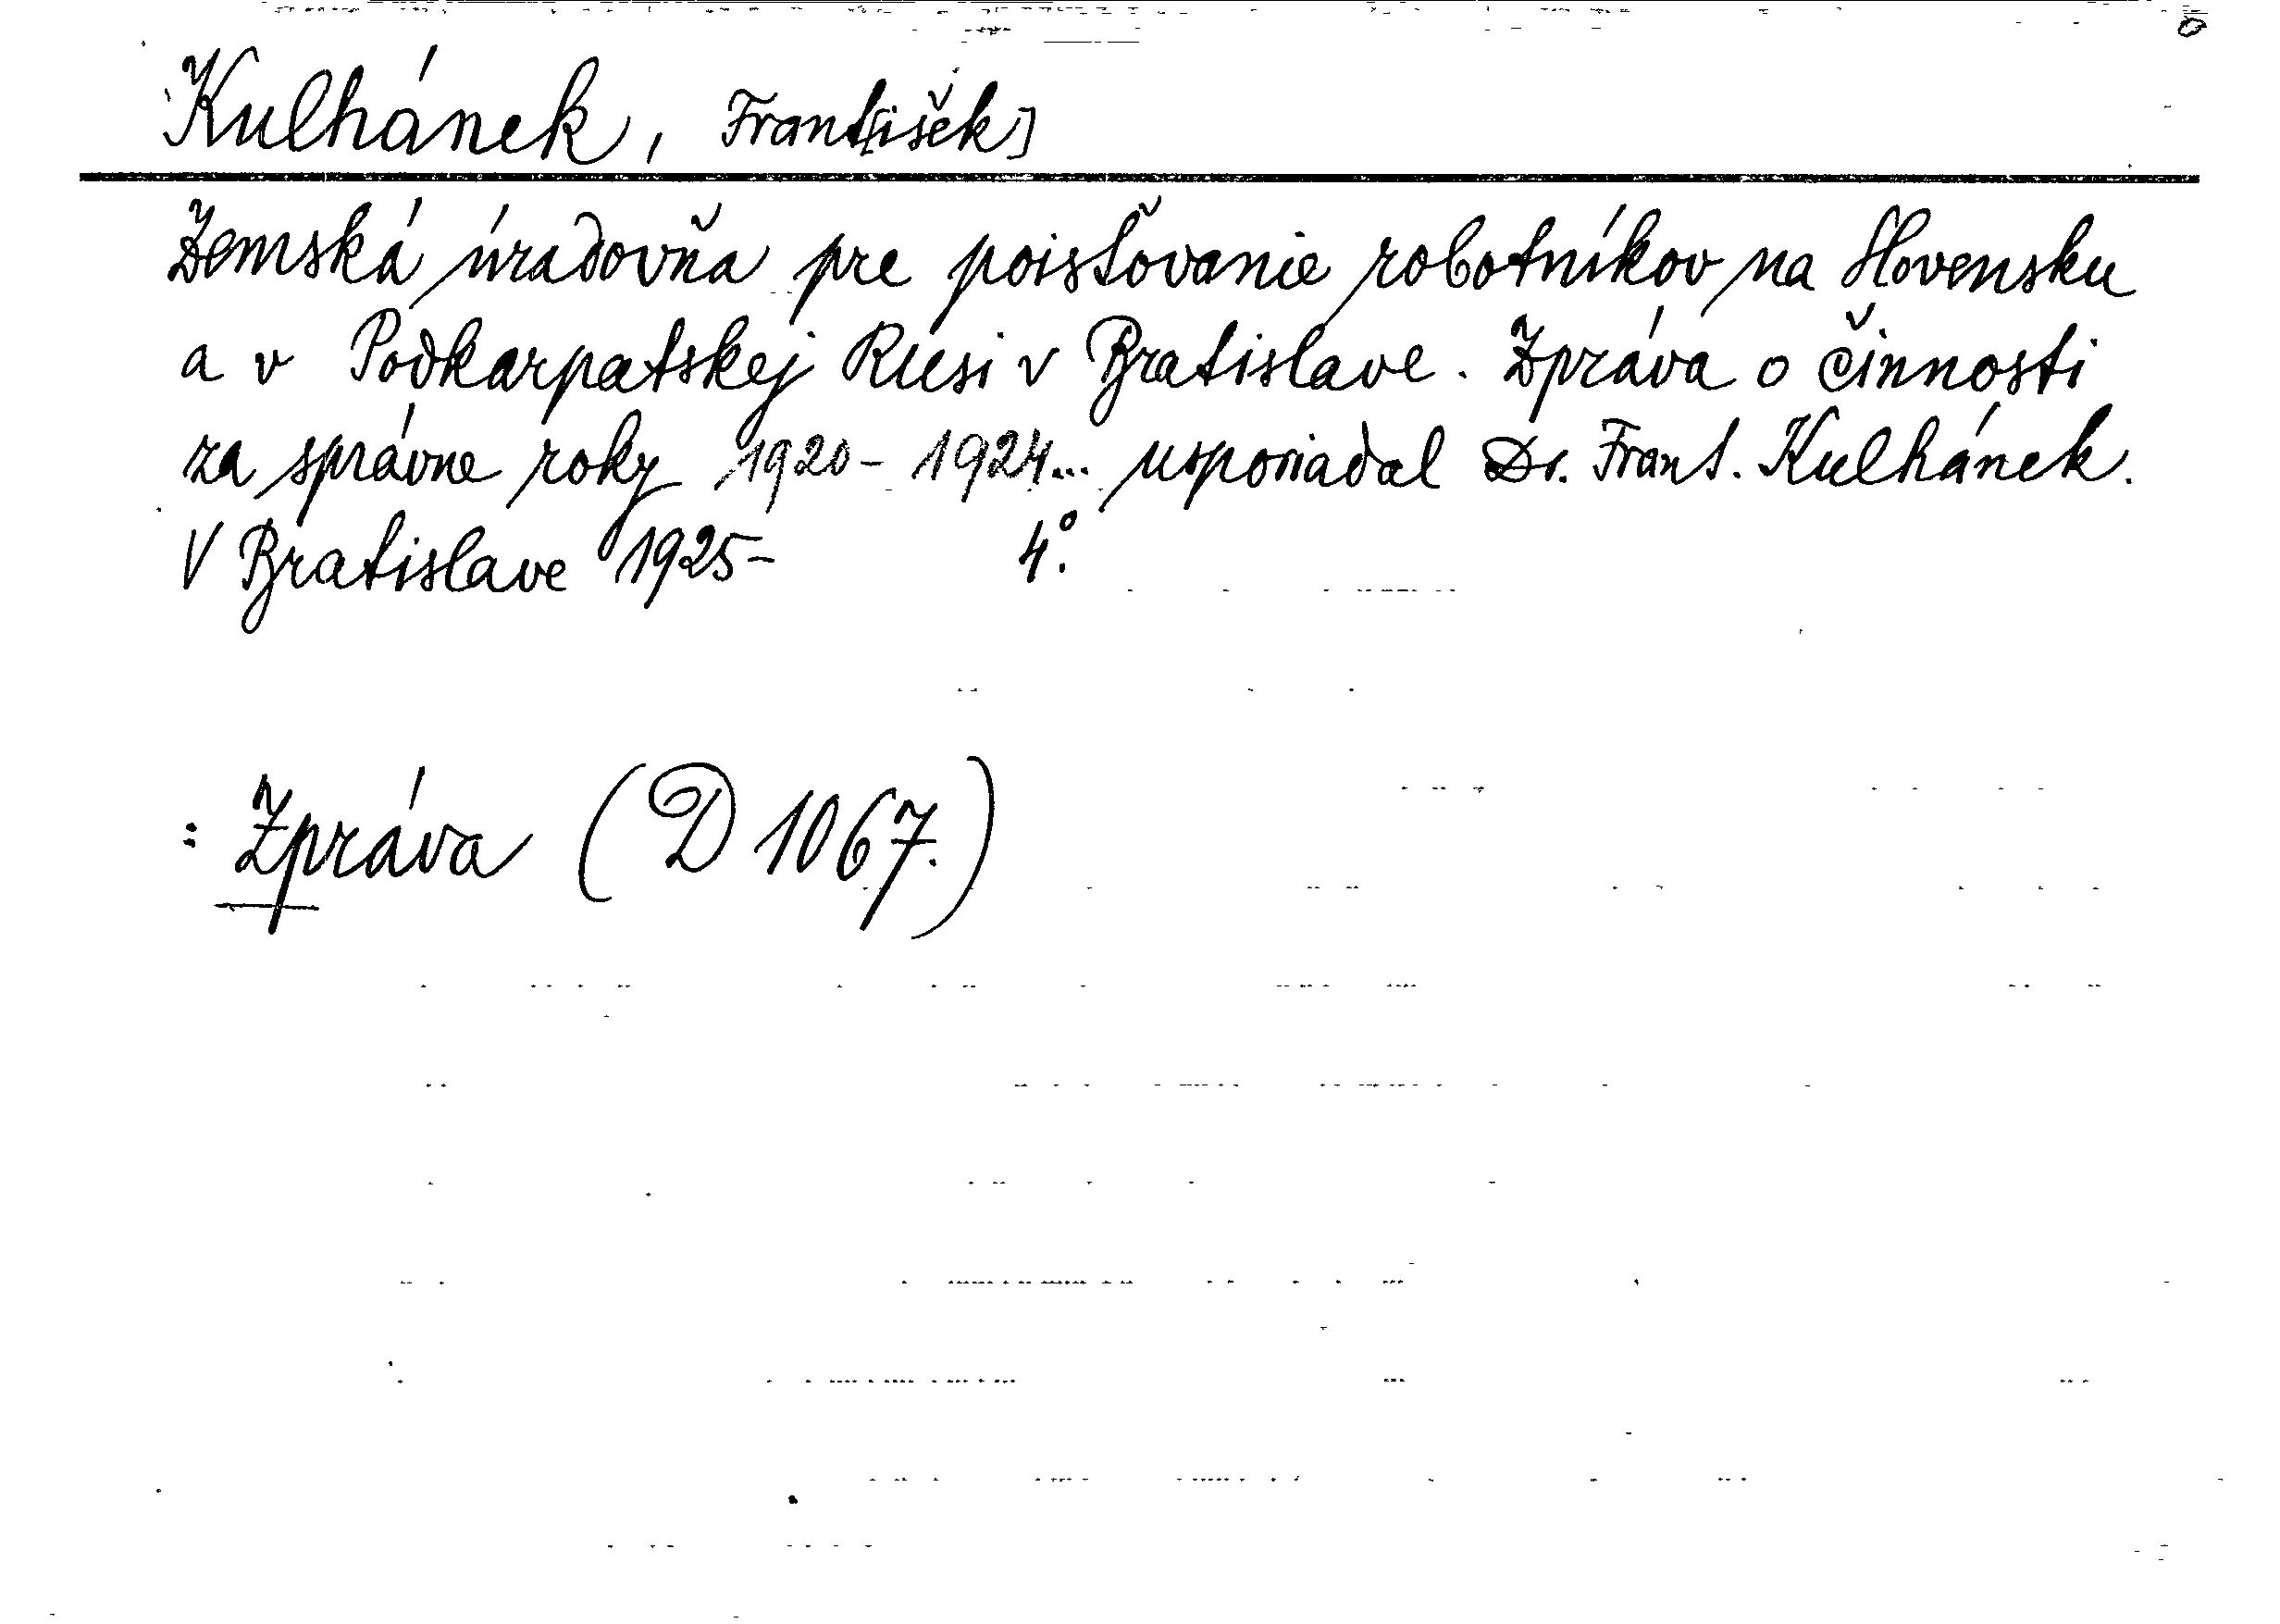 Kulhánek, Frant[išek]
Zemská úradovňa pre poisťovanie robotníkov na Slovensku
a v Podkarpatskej Rusi v Bratislave. Zpráva o činnosti
za správne roky 1920-1924... usporiadal Dr. Frant. Kulhánek.
V Bratislave 1925- 4°.
: Zpráva (D 1067.)